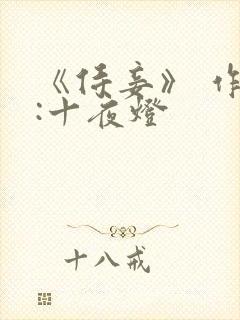 《侍妾》 作
:十夜燈
十八戒